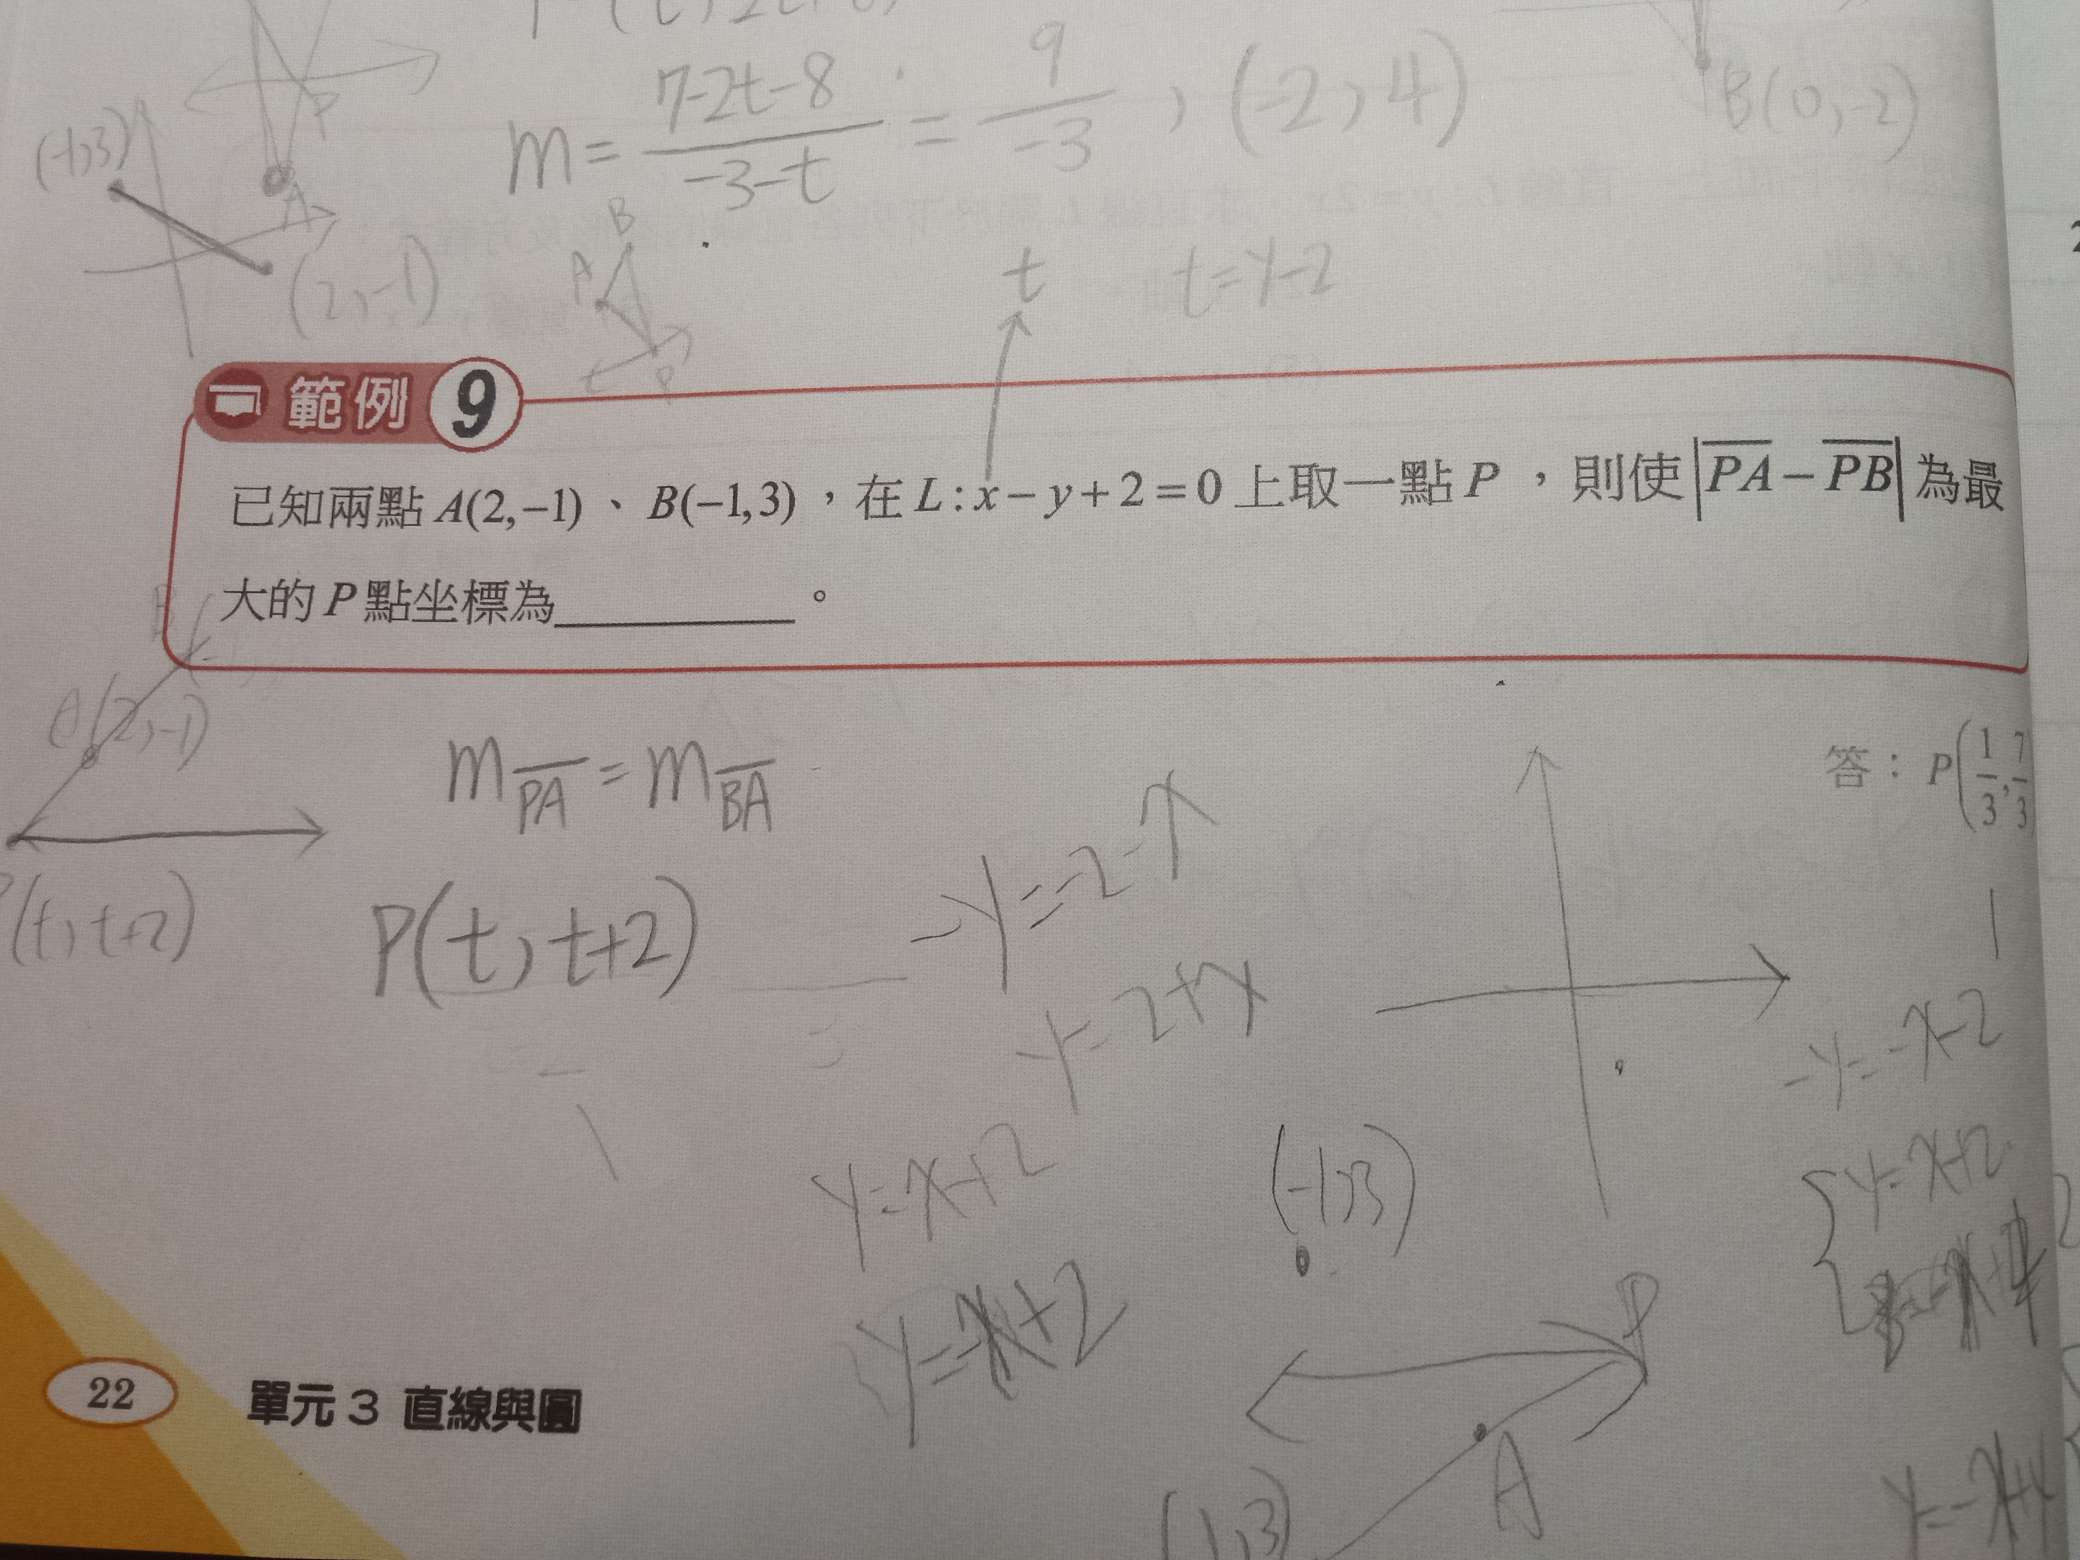 m = (7-2t-8)/(-3-t) = 9/-3 , (-2, 4)
B(0,-2)
(-1,3)
P
A
(2,-1)
B
A
P
t
t=y-2
範例 9
已知兩點 A(2,−1)、B(−1,3),在 L:x−y+2=0 上取一點 P ,則使 |PA−PB| 為最
大的 P 點坐標為__________。
A(2,-1)
m PA = m BA
答:P(1/3,7/3
P(t, t+2)
(t, t+2)
-y=-2-x
-y=2+x
-y=-x-2
y=x+2
y=x+2
(-1,3)
P
A
(1,3)
22 單元 3 直線與圓